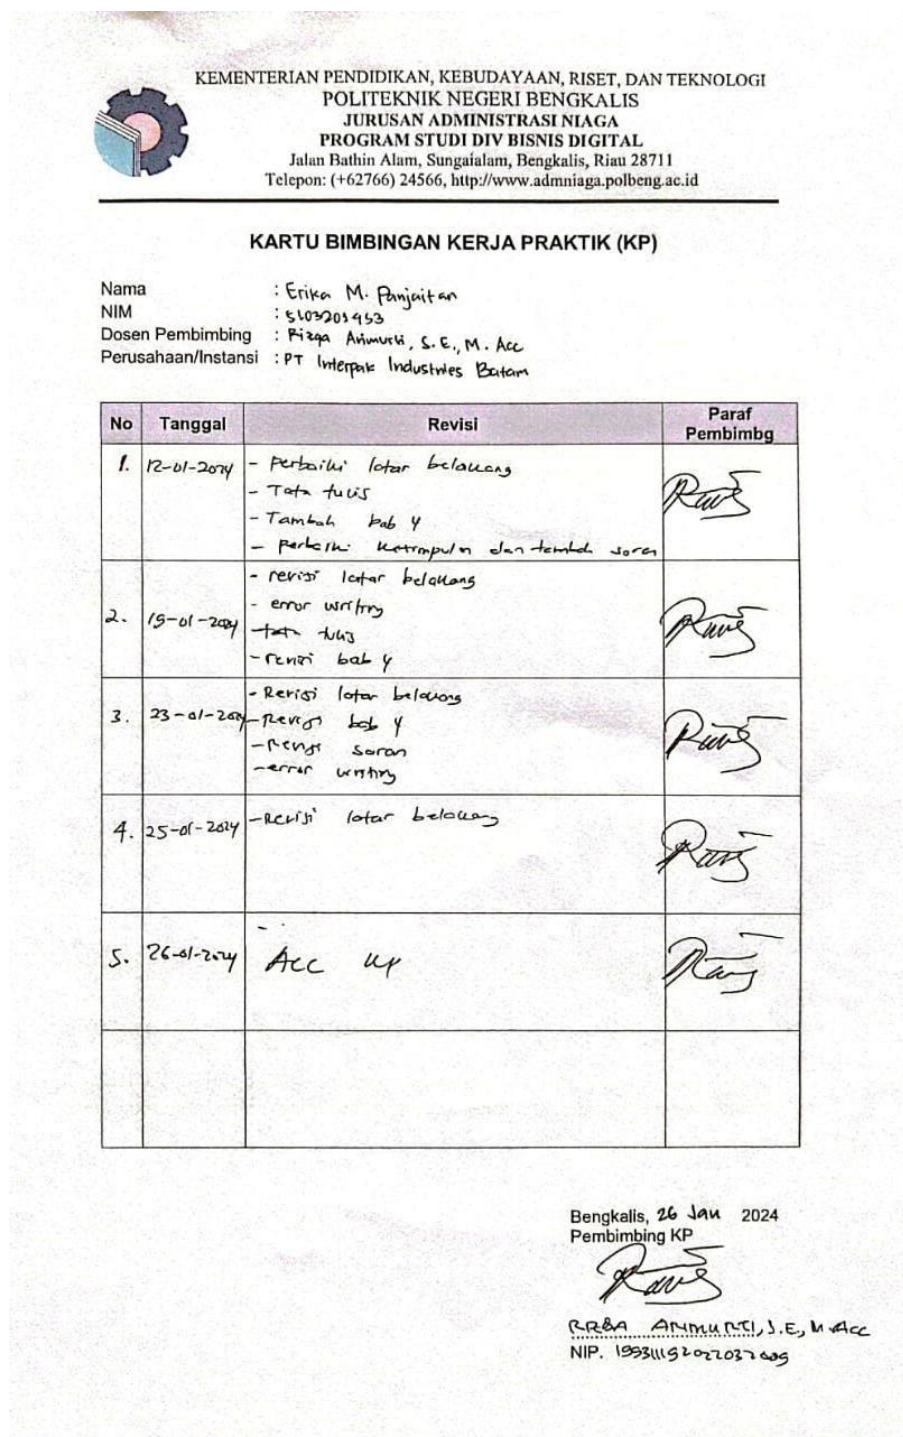 KEMENTERIAN PENDIDIKAN, KEBUDAYAAN, RISET, DAN TEKNOLOGI
POLITEKNIK NEGERI BENGKALIS
JURUSAN ADMINISTRASI NIAGA
PROGRAM STUDI DIV BISNIS DIGITAL
Jalan Bathin Alam, Sungaialam, Bengkalis, Riau 28711
Telepon: (+62766) 24566, http://www.admniaga.polbeng.ac.id
KARTU BIMBINGAN KERJA PRAKTIK (KP)
Nama : Erika M. Panjaitan
NIM : 5103201453
Dosen Pembimbing : Rizqa Arimurti, S.E., M. Acc
Perusahaan/Instansi : PT Interpak Industries Batam
No Tanggal Revisi Paraf Pembimbg
1. 12-01-2024 - Perbaiki latar belakang
- Tata tulis
- Tambah bab 4
- Perbaiki kesimpulan dan tambah saran
2. 19-01-2024 - revisi latar belakang
- error writing
- tata tulis
- revisi bab 4
3. 23-01-2024 - Revisi latar belakang
- Revisi bab 4
- Revisi saran
- error writing
4. 25-01-2024 - Revisi latar belakang
5. 26-01-2024 - Acc KP
Bengkalis, 26 Jan 2024
Pembimbing KP
ARIMURTI, S.E, M.Acc
NIP.